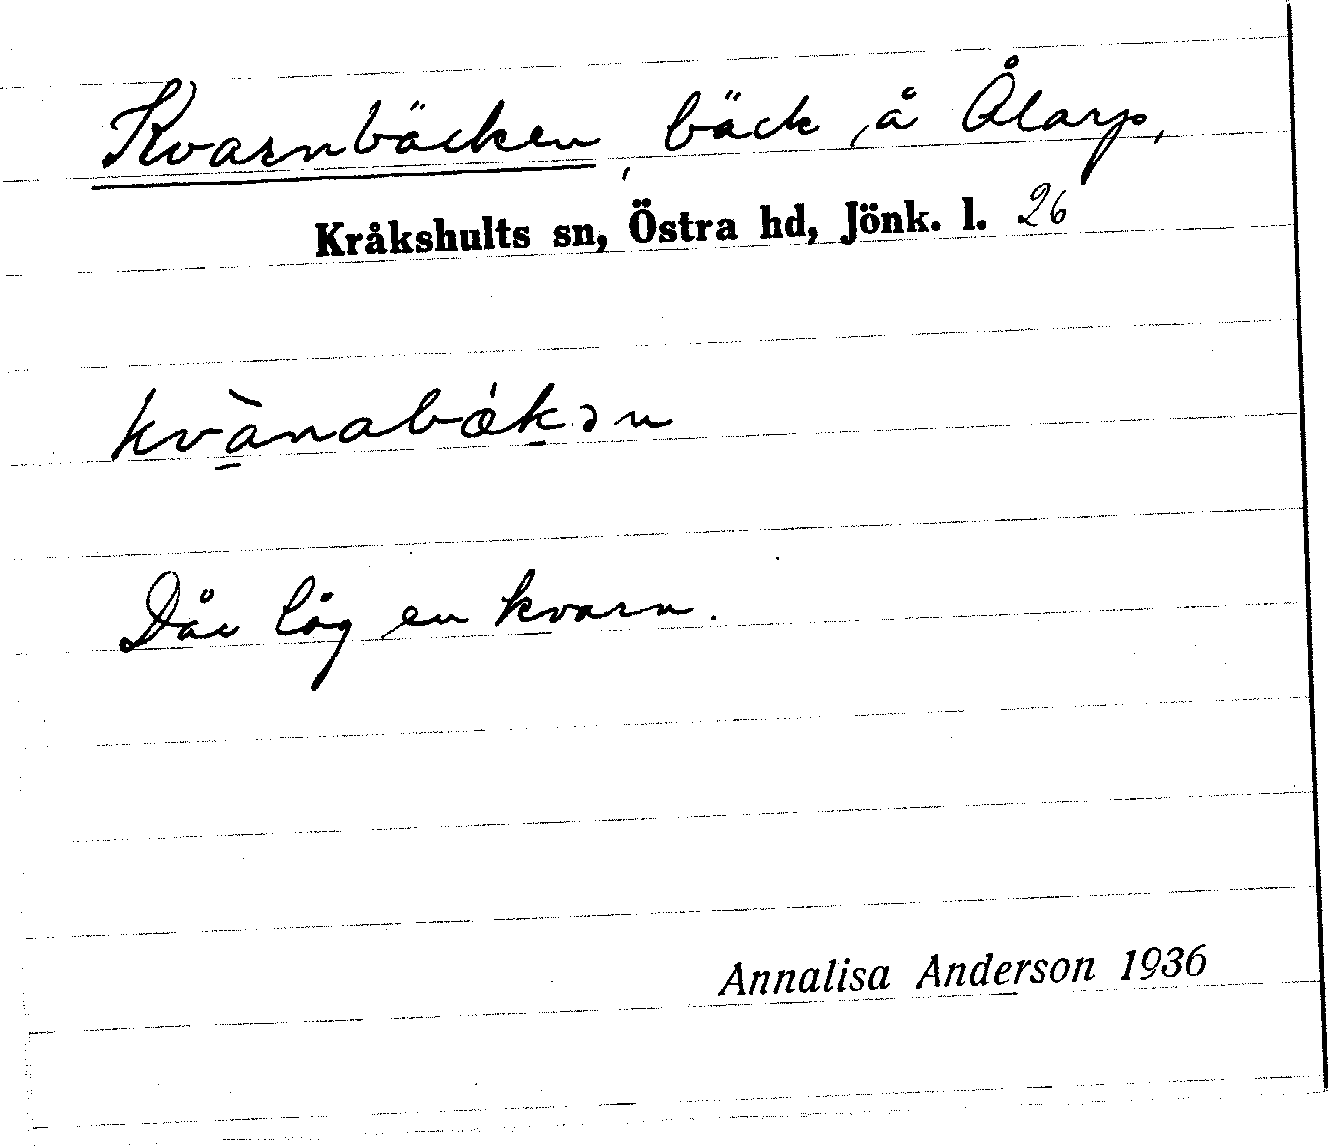 Kvarnbäcken, bäck, å Ålarp,
Kråkshults sn, Östra hd, Jönk. l. 26
kvànabǽkən
Där låg en kvarn.
Annalisa Anderson 1936